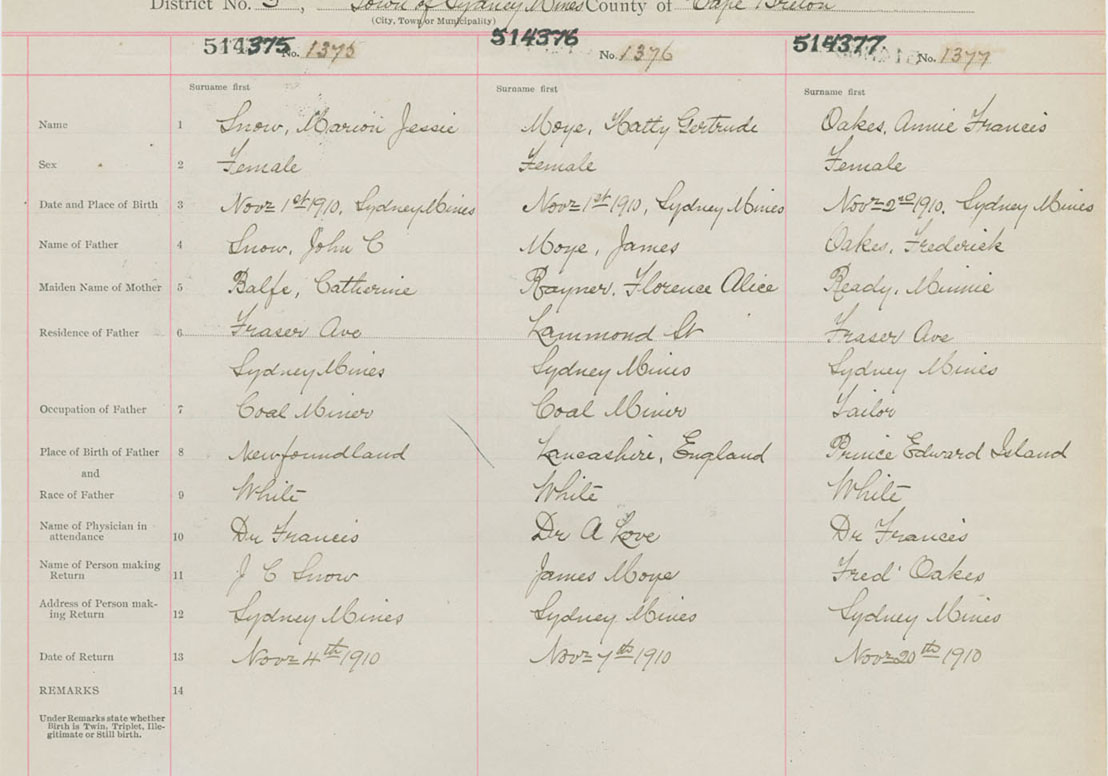 District No. 3, Town of Sydney Mines County of Cape Breton
(City, Town or Municipality)
514375 No. 1375 514376 No. 1376 514377 No. 1377
Surname first Surname first Surname first
Name 1 Snow, Marion Jessie Moye, Hatty Gertrude Oakes, Annie Francis
Sex 2 Female Female Female
Date and Place of Birth 3 Novr 1st 1910, Sydney Mines Novr 1st 1910, Sydney Mines Novr 2nd 1910, Sydney Mines
Name of Father 4 Snow, John C Moye, James Oakes, Frederick
Maiden Name of Mother 5 Balfe, Catherine Rayner, Florence Alice Ready, Minnie
Residence of Father 6 Fraser Ave Lammond St Fraser Ave
Sydney Mines Sydney Mines Sydney Mines
Occupation of Father 7 Coal Miner Coal Miner Tailor
Place of Birth of Father 8 Newfoundland Lancashire, England Prince Edward Island
and
Race of Father 9 White White White
Name of Physician in
attendance 10 Dr Francis Dr A Love Dr Francis
Name of Person making
Return 11 J C Snow James Moye Fred' Oakes
Address of Person mak-
ing Return 12 Sydney Mines Sydney Mines Sydney Mines
Date of Return 13 Novr 4th 1910 Novr 7th 1910 Novr 20th 1910
REMARKS 14
Under Remarks state whether
Birth is Twin, Triplet, Ille-
gitimate or Still birth.